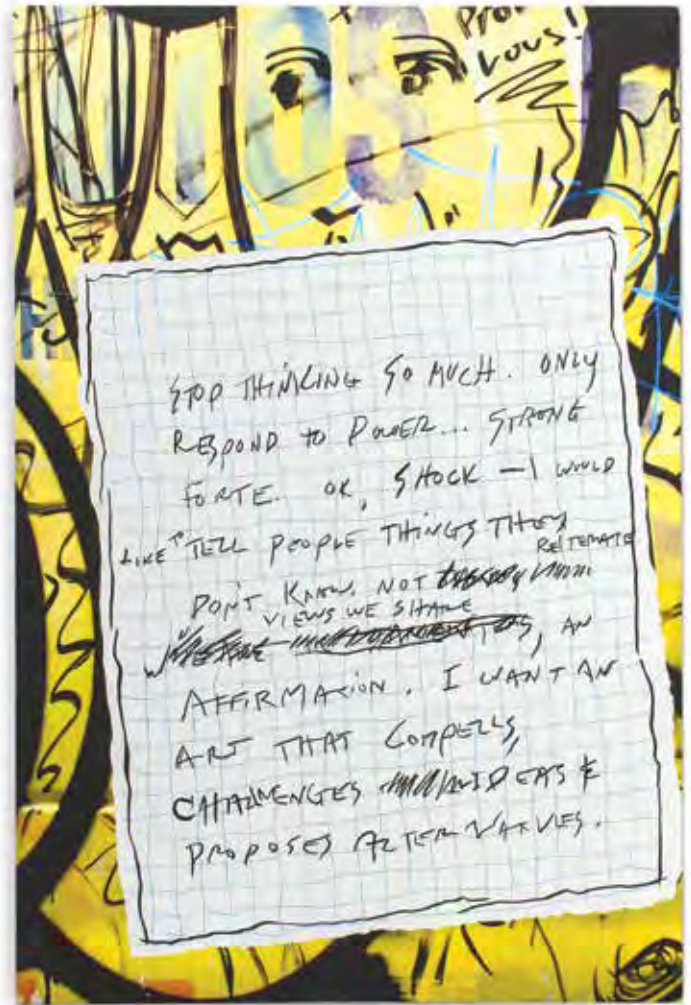 VOUS!
STOP THINKING SO MUCH. ONLY
RESPOND TO POWER... STRONG
FORTE. OK, SHOCK — I WOULD
LIKE TO TELL PEOPLE THINGS THEY
DON'T KNOW, NOT REITERATE
VIEWS WE SHARE
, AN
AFFIRMATION. I WANT AN
ART THAT COMPELLS,
CHALLENGES IDEAS &
PROPOSES ALTERNATIVES.